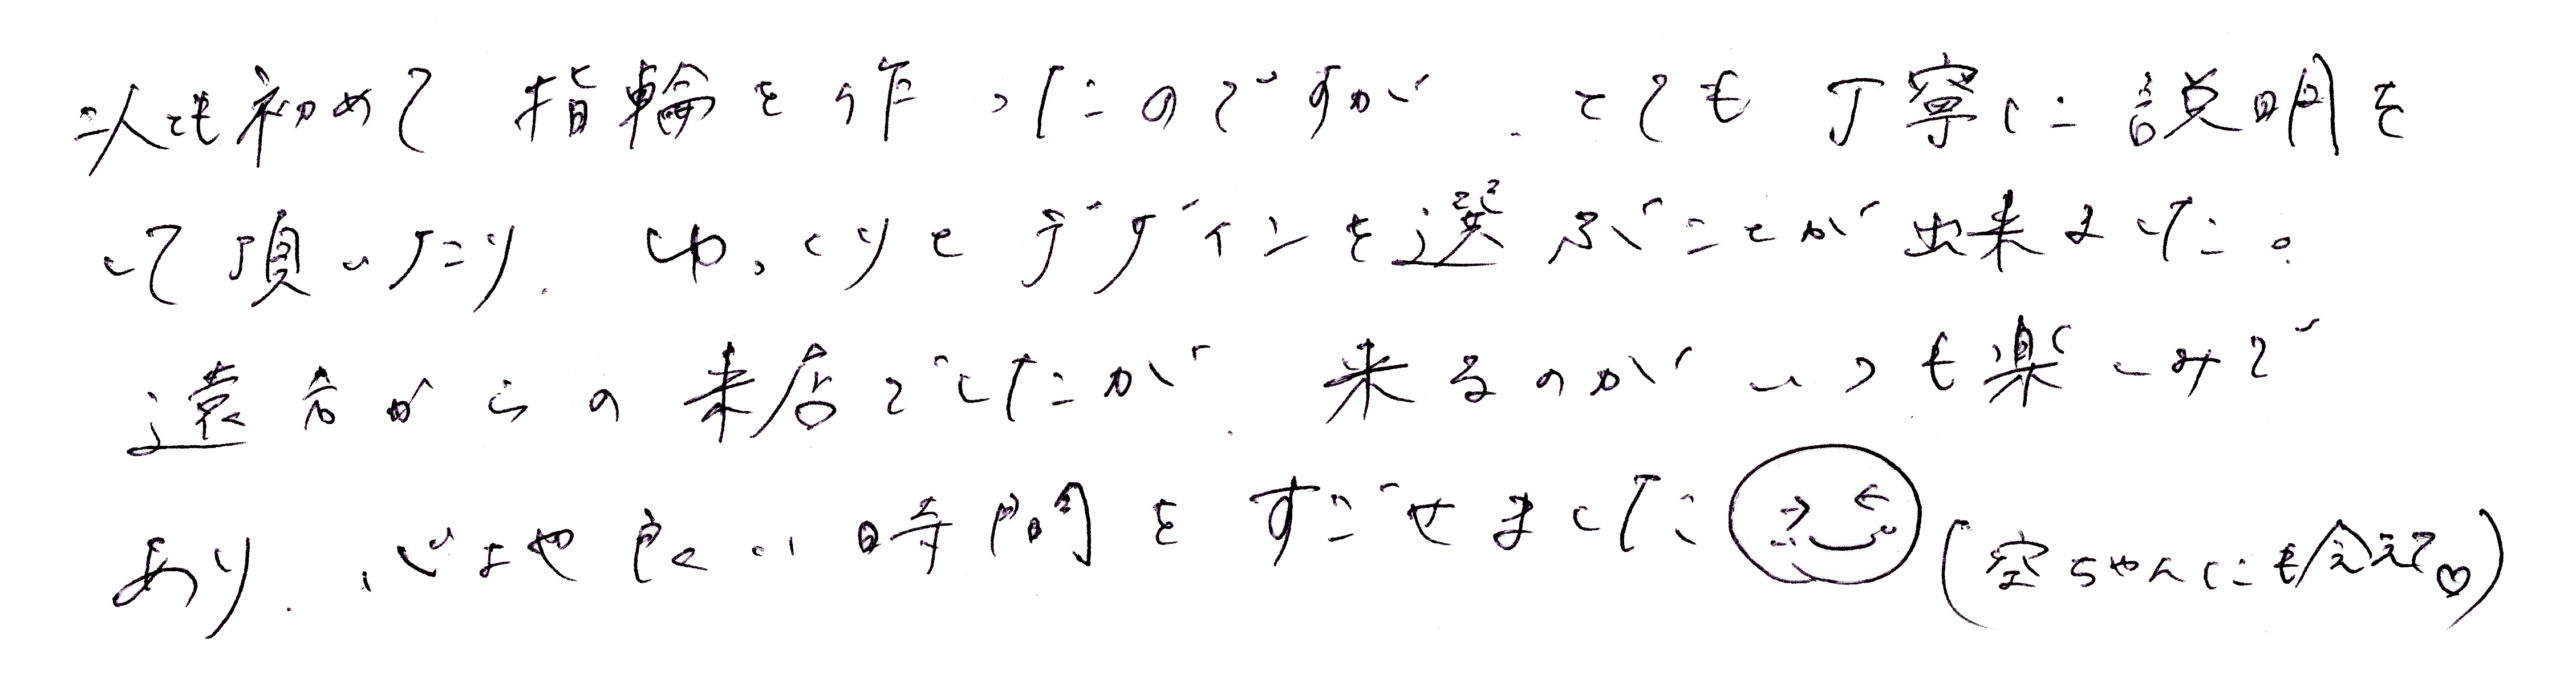 二人とも初めて指輪を作ったのですが、とても丁寧に説明を
して頂いたり、ゆっくりとデザインを選ぶことが出来ました。
遠方からの来店でしたが、来るのがいつも楽しみで
あり、心地良い時間をすごせました(空ちゃんにも会えて♡)